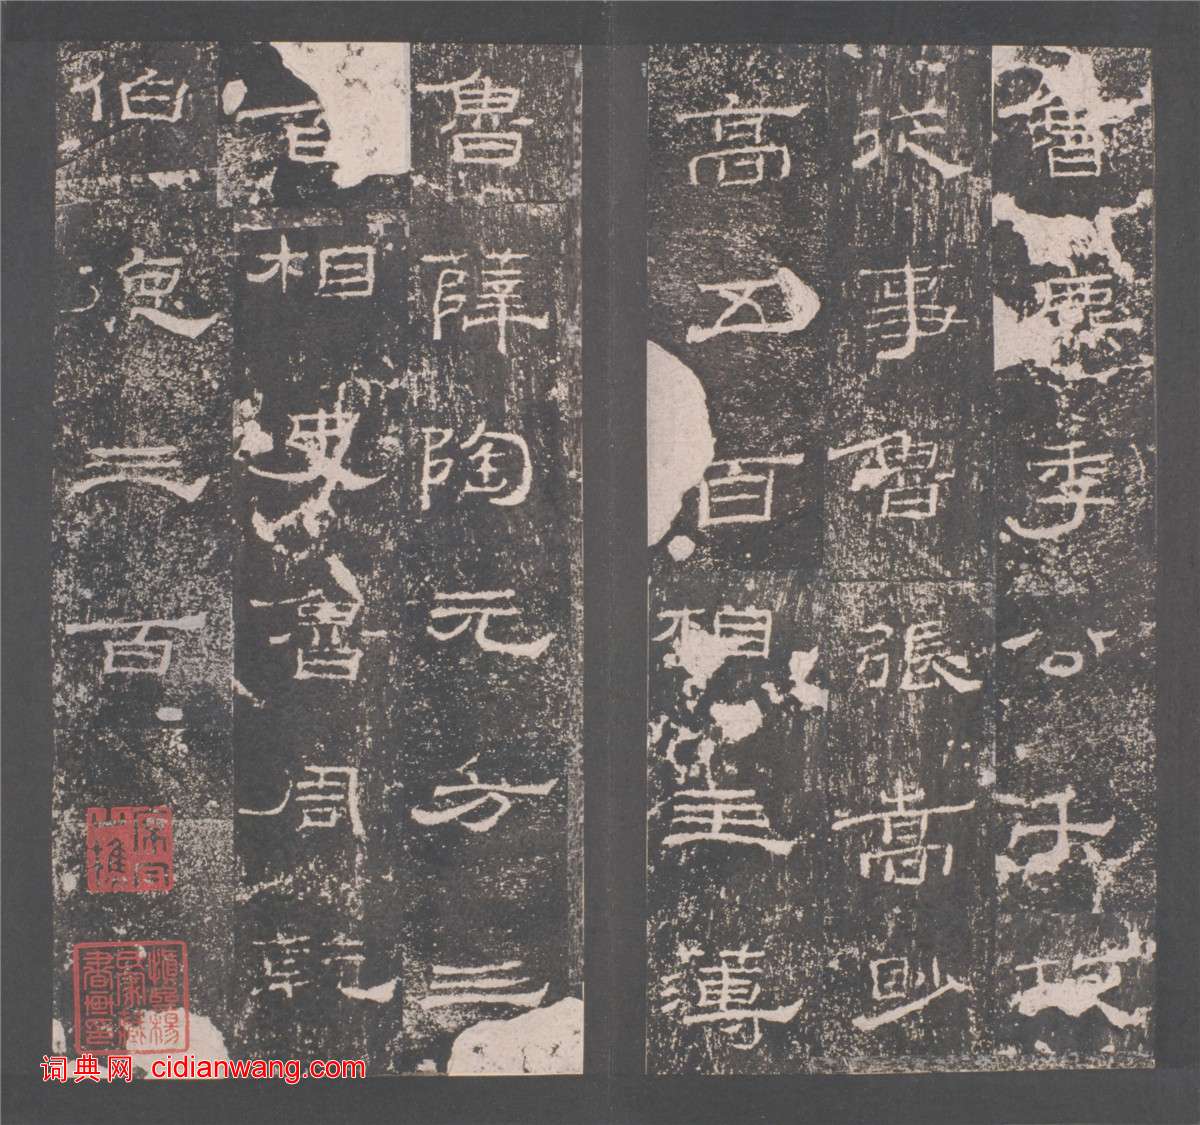 魯麃季公千故
從事魯張嵩眇
高五百相主薄
魯薛陶元方三
百相史魯周乾
伯德三百
词典网 cidianwang.com